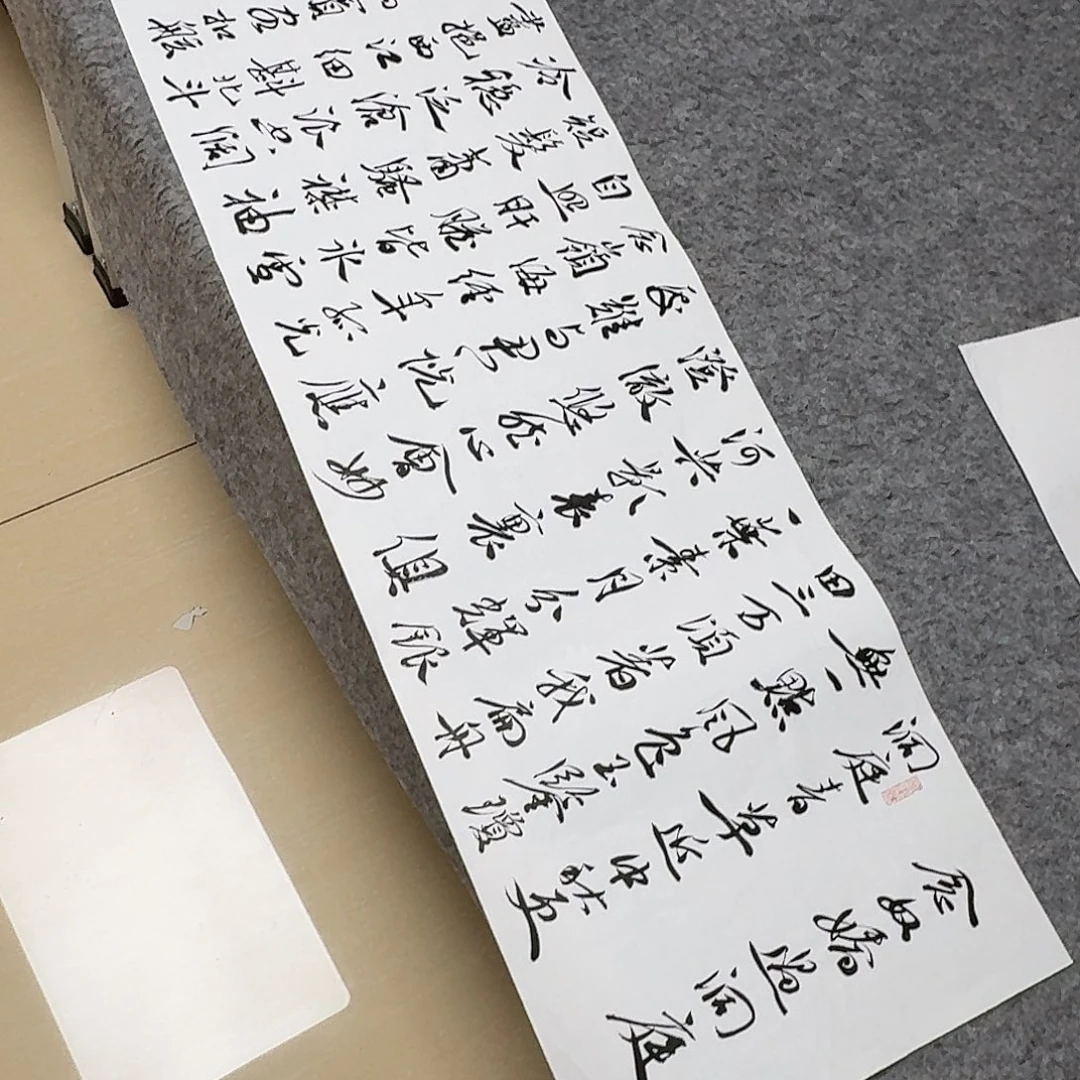 念奴嬌過洞庭
洞庭青草近中秋更
無一點風色玉鑒瓊
田三万頃著我扁舟
一葉素月分輝銀
河共影表裏俱
澄澈悠然心會妙
處難与君說應
念嶺海經年孤光
自照肝膽皆冰雪
短髮蕭騷襟袖
冷穩泛滄浪空闊
盡挹西江細斟北斗
賓客扣舷